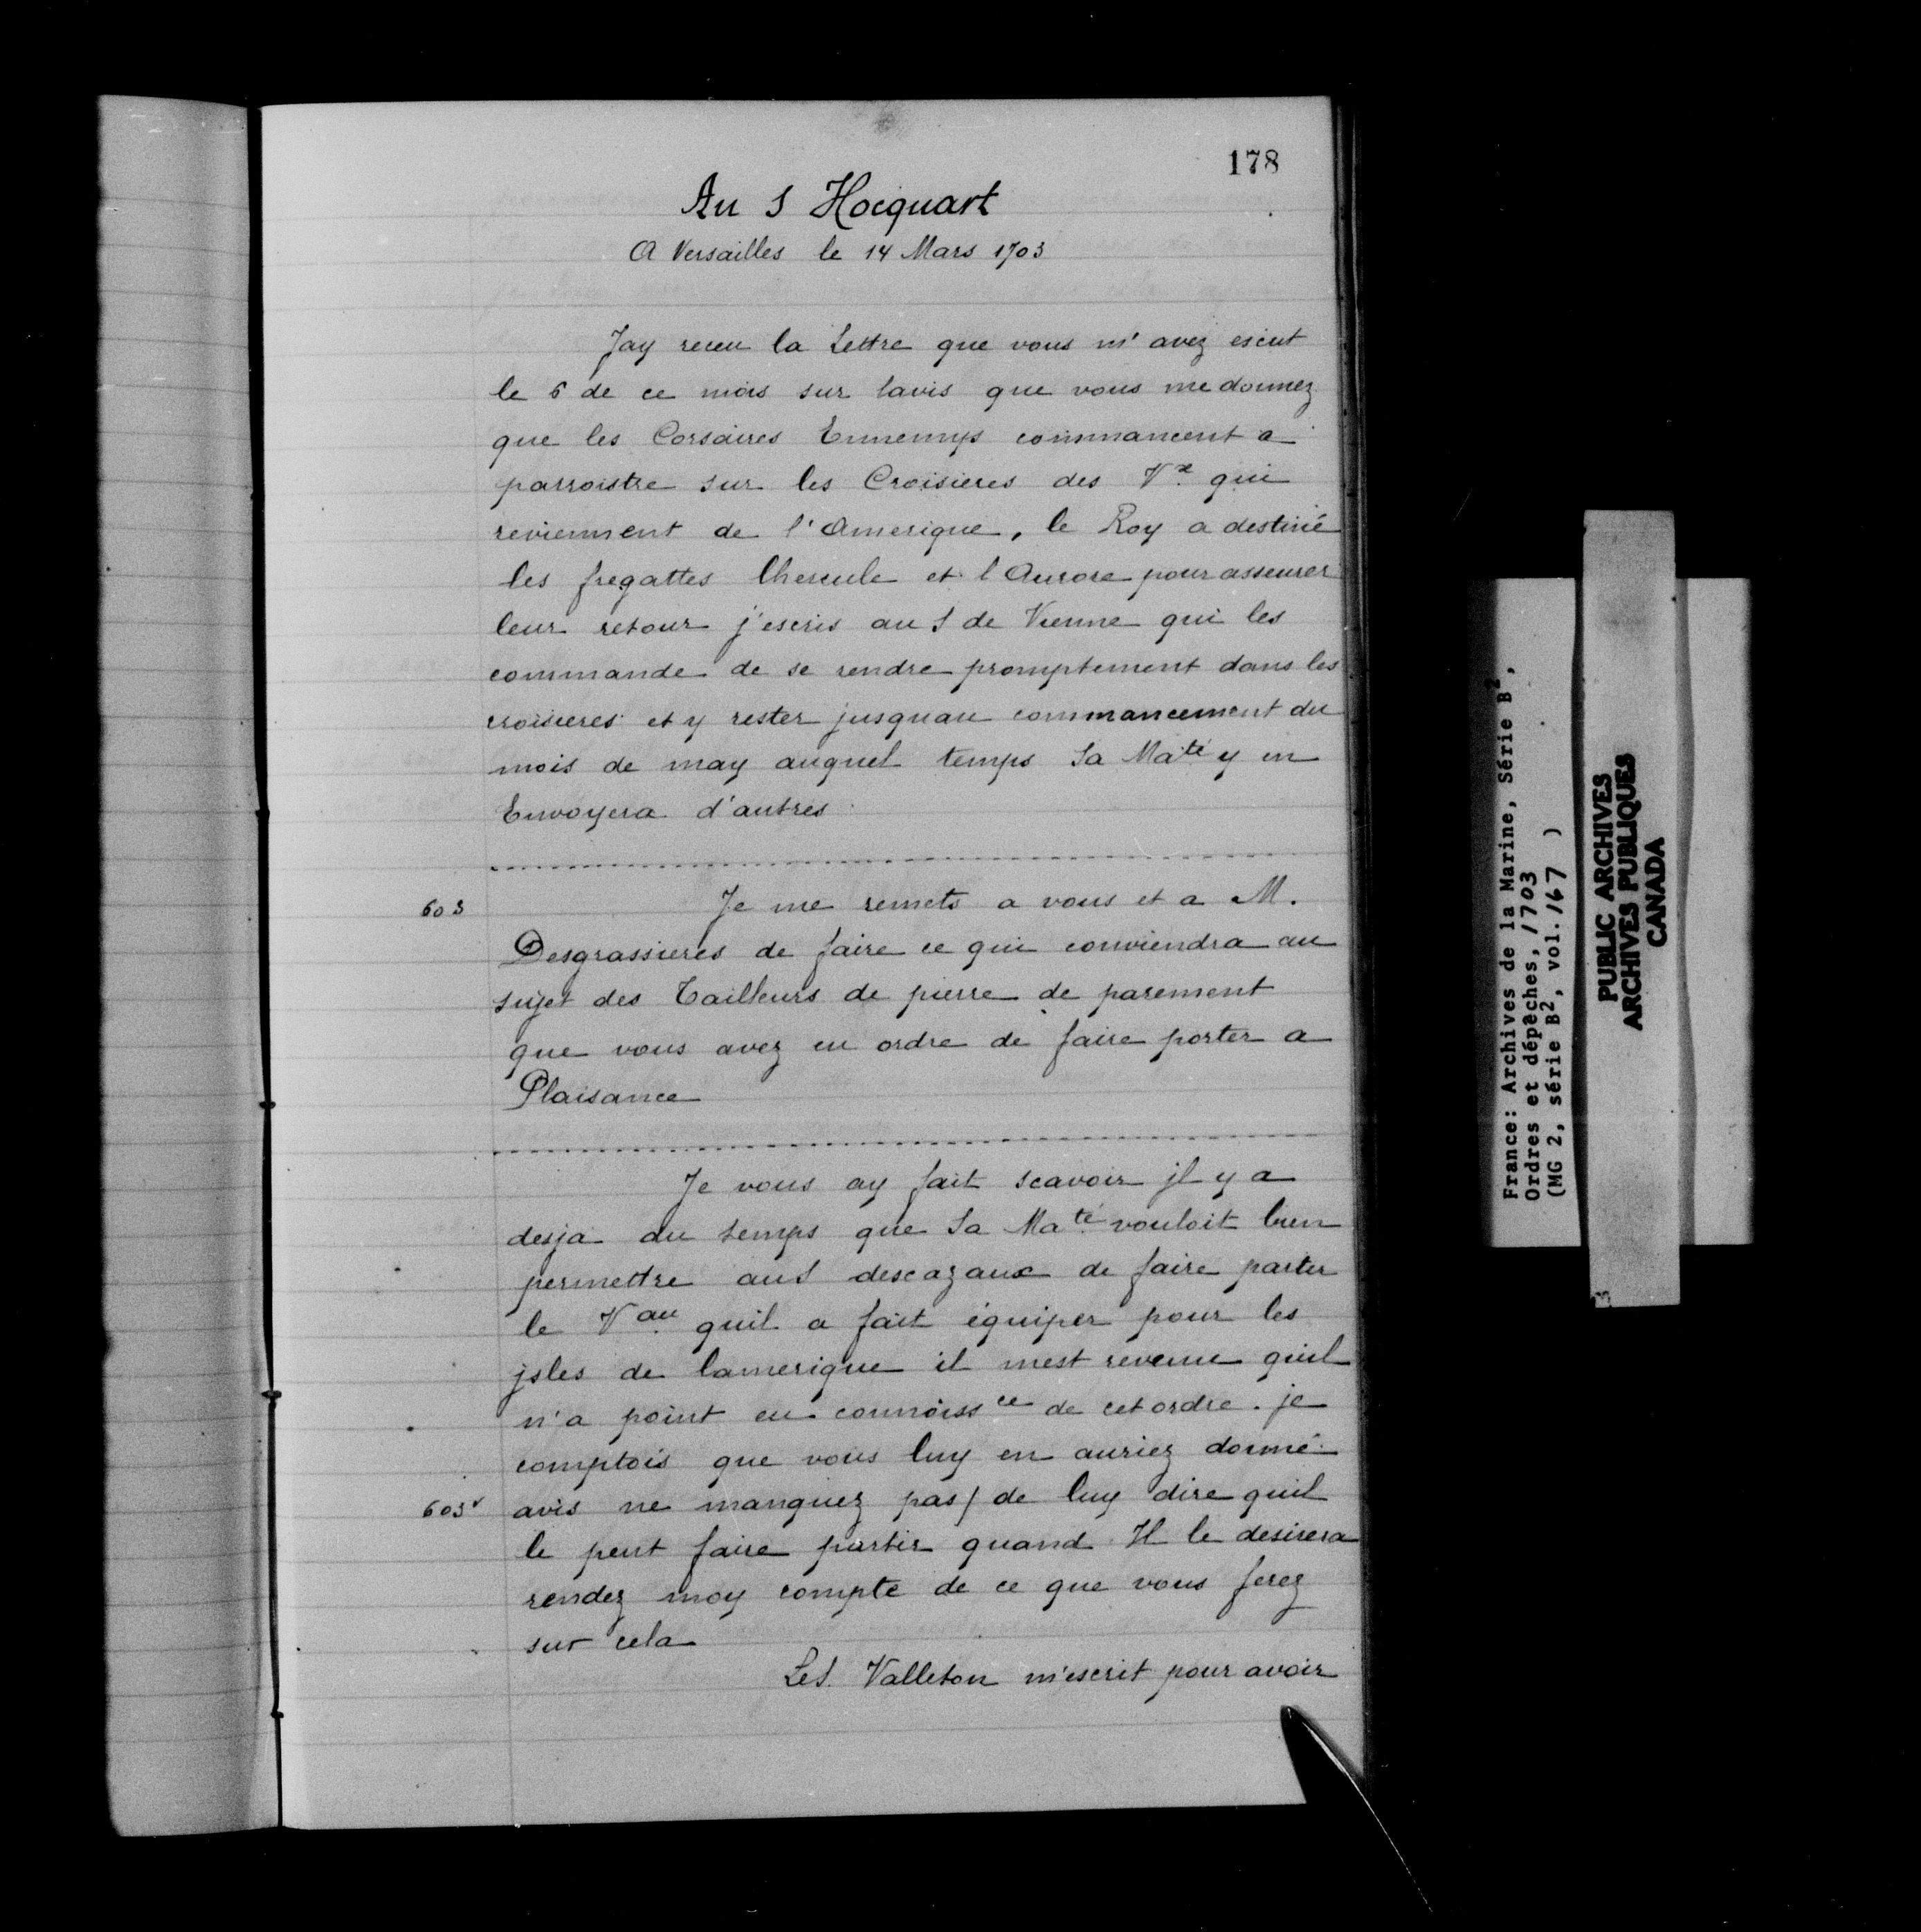 178
Au S Hocquart
A Versailles le 14 Mars 1703
Jay receu la Lettre que vous m'avez escrit
le 6 de ce mois sur lavis que vous me donnez
que les Corsaires Ennemys commancent a
parroistre sur les Croisieres des Vx qui
reviennent de l'Amerique, le Roy a destiné
les fregattes lhercule et l Aurore pour asseurer
leur retour j'escris au S de Vienne qui les
commande de se rendre promptement dans les
croisieres et y rester jusquau commancement du
mois de may auquel temps Sa Maté y en
Envoyera d'autres
603
Je me remets a vous et a M.
Desgrassieres de faire ce qui conviendra au
sujet des Tailleurs de pierre de parement
que vous avez eu ordre de faire porter a
Plaisance
Je vous ay fait scavoir jl y a
desja du temps que Sa Maté vouloit bien
permettre au S descazaux de faire partir
le Vau quil a fait équiper pour les
jsles de lamerique il mest revenu quil
n'a point eu connoissce de cet ordre. je
comptois que vous luy en auriez donné
603v avis ne manquez pas / de luy dire quil
le peut faire partir quand Il le desirera
rendez moy compte de ce que vous ferez
sur cela
Le S. Valleton m'escrit pour avoir
France: Archives de la Marine, Série B2,
Ordres et dépêches, 1703
(MG 2, série B2, vol. 167 )
PUBLIC ARCHIVES
ARCHIVES PUBLIQUES
CANADA